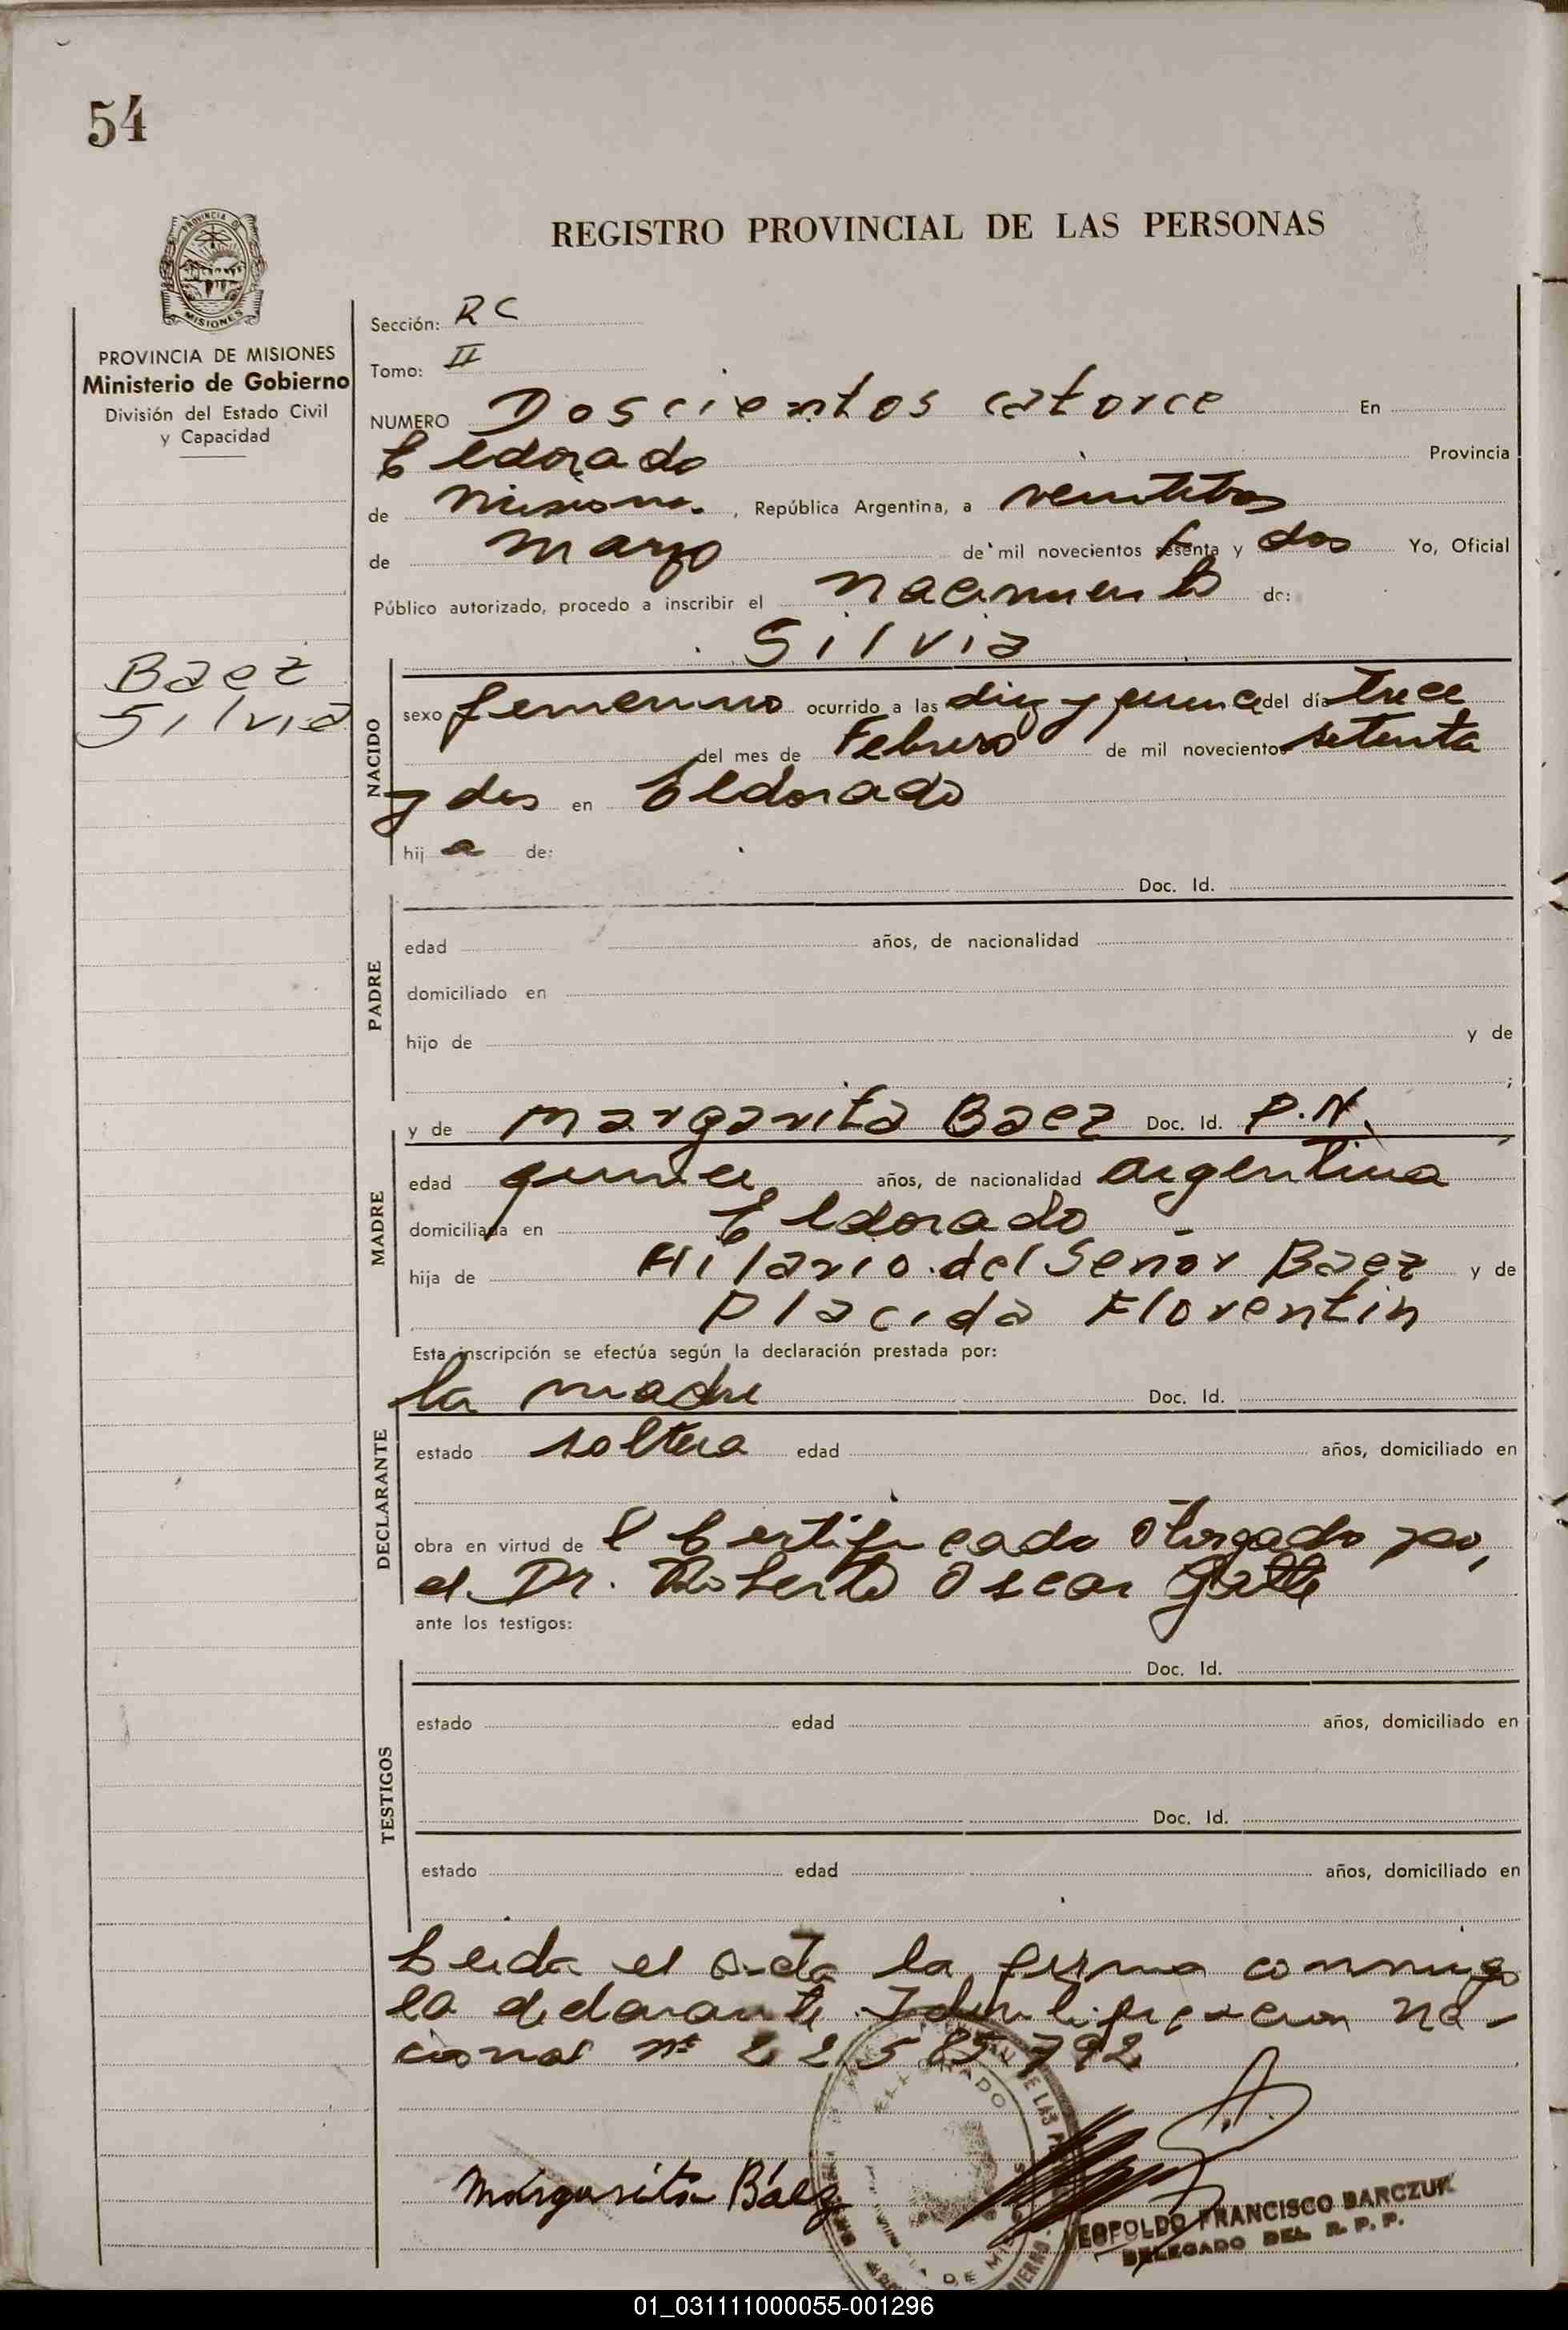 54
PROVINCIA DE
MISIONES
REGISTRO PROVINCIAL DE LAS PERSONAS
PROVINCIA DE MISIONES
Ministerio de Gobierno
División del Estado Civil
y Capacidad
Baez
Silvia
Sección: RC
Tomo: II
NUMERO Doscientos catorce En
Eldorado Provincia
de Misiones, República Argentina, a veintitres
de Marzo de mil novecientos sesenta y dos Yo, Oficial
Público autorizado, procedo a inscribir el nacimiento de:
Silvia
NACIDO
sexo femenino ocurrido a las diez y del día trece
del mes de Febrero de mil novecientos setenta
y dos en Eldorado
hij a de:
Doc. Id.
PADRE
edad años, de nacionalidad
domiciliado en
hijo de y de
;
y de Margarita Baez Doc. Id. P.N.
MADRE
edad quince años, de nacionalidad argentina
domiciliada en Eldorado
hija de Hilario del Señor Baez y de
Placida Florentin
Esta inscripción se efectúa según la declaración prestada por:
la madre Doc. Id.
DECLARANTE
estado soltera edad años, domiciliado en
obra en virtud de l Certificado otorgado por
el Dr. Roberto Oscar
ante los testigos:
Doc. Id.
TESTIGOS
estado edad años, domiciliado en
Doc. Id.
estado edad años, domiciliado en
Leida el acta la firma conmigo
la declarante. Identificacion Na-
cional nº 22.585.792
Margarita Báez
LEOPOLDO FRANCISCO BARCZUK
DELEGADO DEL R. P. P.
01_031111000055-001296